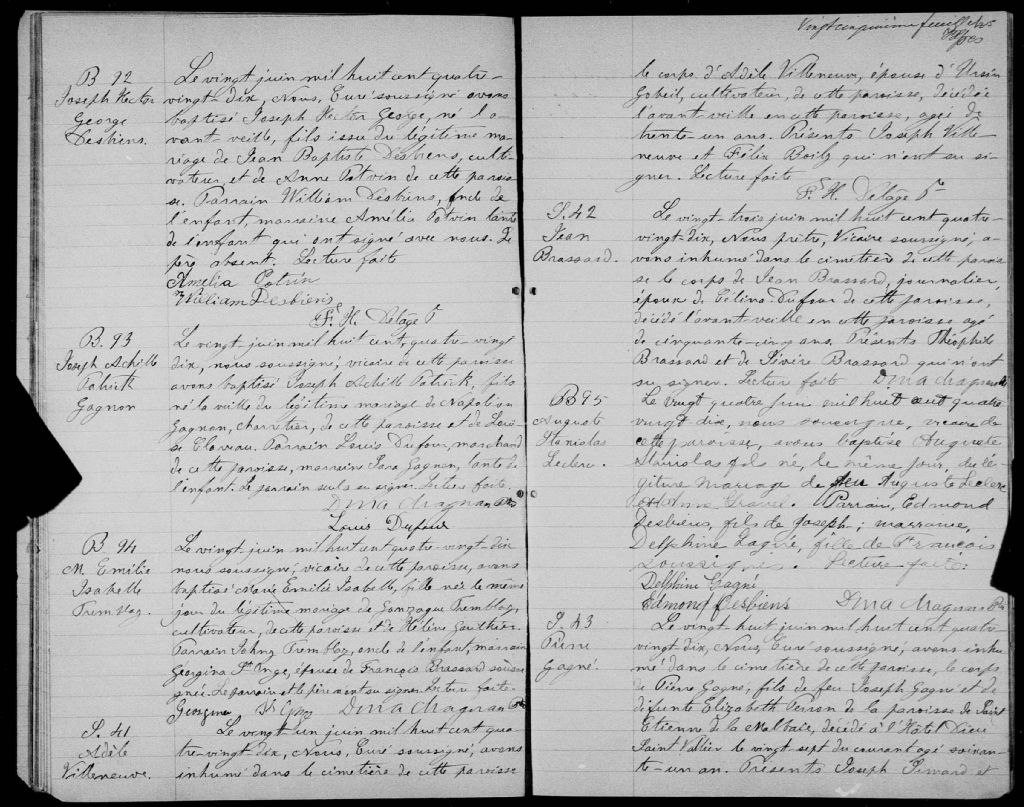 B 92
Joseph Hector
George
Desbiens.
Le vingt juin mil huit cent quatre-
vingt-dix, Nous, Curé soussigné avons
baptisé Joseph Hector George, né l'a-
vant-veille, fils issu du légitime ma-
riage de Jean Baptiste Desbiens, culti-
vateur, et de Anne Potvin de cette parois-
se. Parrain William Desbiens, oncle de
l'enfant, marraine Amélie Potvin tante
de l'enfant qui ont signé avec nous. Le
père absent. Lecture faite
Amelia Potvin
William Desbiens
F. H. Delâge Ptr
B. 93
Joseph Achille
Patrick
Gagnon
Le vingt juin mil huit cent, quatre-vingt
dix, nous soussigné, vicaire de cette paroisse
avons baptisé Joseph Achille Patrick, fils
né la veille du légitime mariage de Napoléon
Gagnon, charretier, de cette paroisse et de Loui-
se Claveau. Parrain Louis Dufour, marchand
de cette paroisse, marraine Sara Gagnon, tante de
l'enfant. Le parrain seul a su signer. Lecture faite.
Magnan Ptre
Louis Dufour
B. 94
M. Emilie
Isabelle
Tremblay.
Le vingt juin mil huit cent quatre-vingt-dix
nous soussigné, vicaire de cette paroisse, avons
baptisé Marie Emilie Isabelle, fille née le même
jour du légitime mariage de Gonzague Tremblay,
cultivateur, de cette paroisse et de Hélène Gauthier.
Parrain Johny Tremblay, oncle de l'enfant, marraine
Georgina St Onge, épouse de François Brassard soussi-
gnée. Le parrain et le père n'ont su signer. Lecture faite.
Georgina St Onge Magnan Ptre
S. 41
Adèle
Villeneuve.
Le vingt un juin mil huit cent qua-
tre-vingt-dix, Nous, Curé soussigné, avons
inhumé dans le cimetière de cette paroisse
Vingt cinquième feuillet
le corps d'Adèle Villeneuve, épouse d'Ursin
Gobeil, cultivateur, de cette paroisse, décédée
l'avant-veille en cette paroisse, agée de
trente-un ans. Présents Joseph Ville-
neuve et Félix Boily qui n'ont su si-
gner. Lecture faite
F. H. Delâge Ptr
S. 42
Jean
Brassard.
Le vingt-trois juin mil huit cent quatre-
vingt-dix, Nous prêtre, Vicaire soussigné, a-
vons inhumé dans le cimetière de cette parois-
se le corps de Jean Brassard, journalier,
époux de Célina Dufour de cette paroisse,
décédé l'avant-veille en cette paroisse agé
de cinquante-cinq ans. Présents Théophile
Brassard et de Sévère Brassard qui n'ont
su signer. Lecture faite Magnan
B 95
Auguste
Stanislas
Leclerc.
Le vingt quatre juin mil huit cent quatre
vingt dix, nous soussigné, vicaire de
cette paroisse, avons baptisé Auguste
Stanislas fils né, le même jour, du lé-
gitime mariage de feu Auguste Leclerc
Gravel. Parrain, Edmond
Desbiens, fils de Joseph; marraine,
Delphine Gagné, fille de François
soussignés. Lecture faite.
Delphine Gagné
Edmond Desbiens Magnan Ptre
S. 43
Pierre
Gagné.
Le vingt huit juin mil huit cent quatre-
vingt-dix, Nous, Curé soussigné, avons inhu-
mé dans le cimetière de cette paroisse, le corps
de Pierre Gagné, fils de feu Joseph Gagné et de
défunte Elizabeth Perron de la paroisse de Saint
Etienne de la Malbaie, décédé à l'Hôtel Dieu
Saint Vallier le vingt sept du courant agé soixan-
te-un an. Présents Joseph Simard et